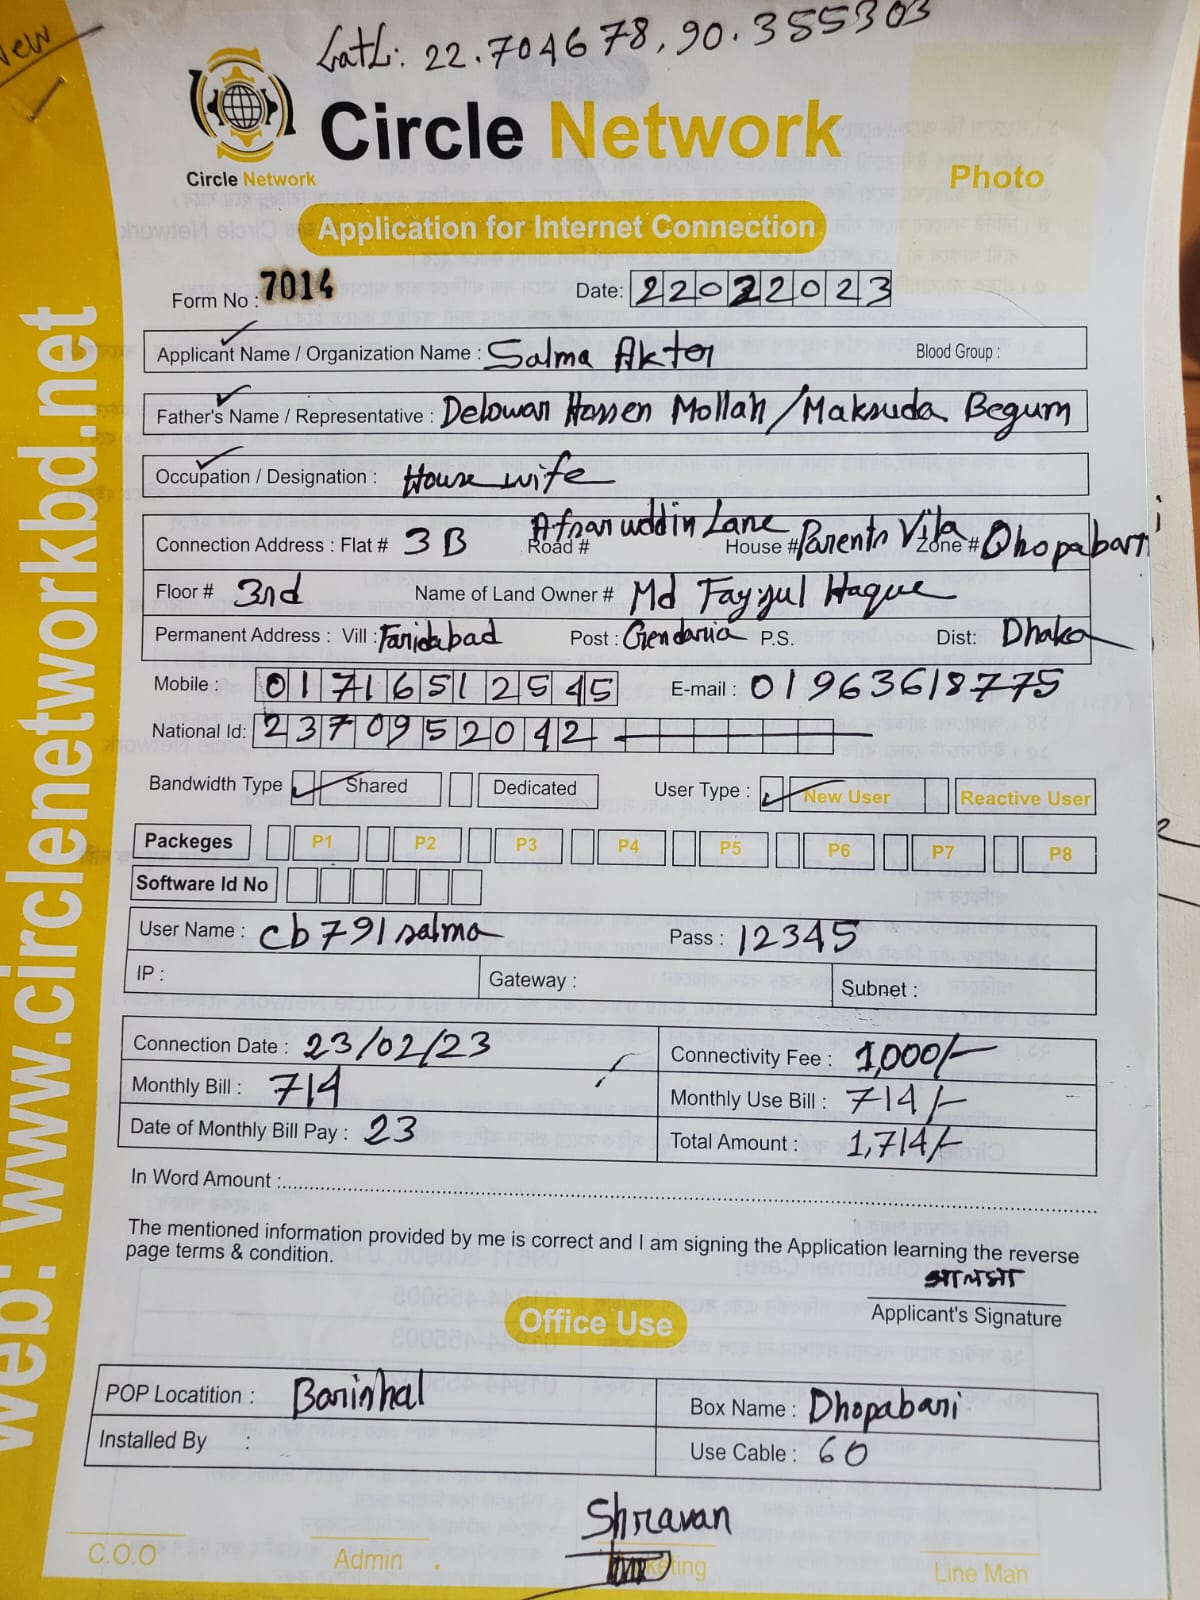 New
LatL: 22.704678, 90.355303
Circle Network
Circle Network
Photo
Application for Internet Connection
Form No : 7014 Date: 22022023
Applicant Name / Organization Name : Salma Akter Blood Group :
Father's Name / Representative : Delowar Hossen Mollah/Maksuda Begum
Occupation / Designation : House wife
Connection Address : Flat # 3B Road # Afsaruddin Lane House # Parents Vila Zone # Dhopabari
Floor # 3rd Name of Land Owner # Md Fayzul Haque
Permanent Address : Vill : Faridabad Post : Gendaria P.S. Dist: Dhaka
Mobile : 01716512545 E-mail : 01963618775
National Id: 2370952042
Bandwidth Type Shared Dedicated User Type : New User Reactive User
Packeges P1 P2 P3 P4 P5 P6 P7 P8
Software Id No
User Name : cb791salma Pass : 12345
IP : Gateway : Subnet :
Connection Date : 23/02/23 Connectivity Fee : 1,000/-
Monthly Bill : 714 Monthly Use Bill : 714/-
Date of Monthly Bill Pay : 23 Total Amount : 1,714/-
In Word Amount :
The mentioned information provided by me is correct and I am signing the Application learning the reverse
page terms & condition.
সালমা
Applicant's Signature
Office Use
POP Locatition : Barishal Box Name : Dhopabari
Installed By : Use Cable : 60
Shravan
C.O.O Admin Marketing Line Man
web: www.circlenetworkbd.net